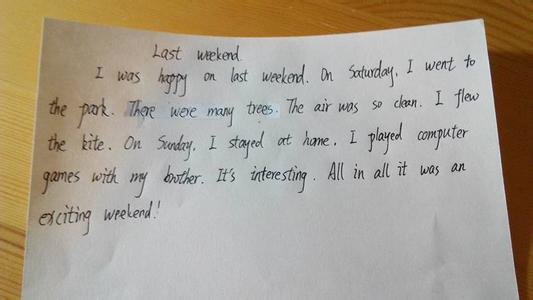 Last weekend.
I was happy on last weekend. On Saturday, I went to
the park. There were many trees. The air was so clean. I flew
the kite. On Sunday, I stayed at home. I played computer
games with my brother. It's interesting. All in all it was an
exciting weekend!